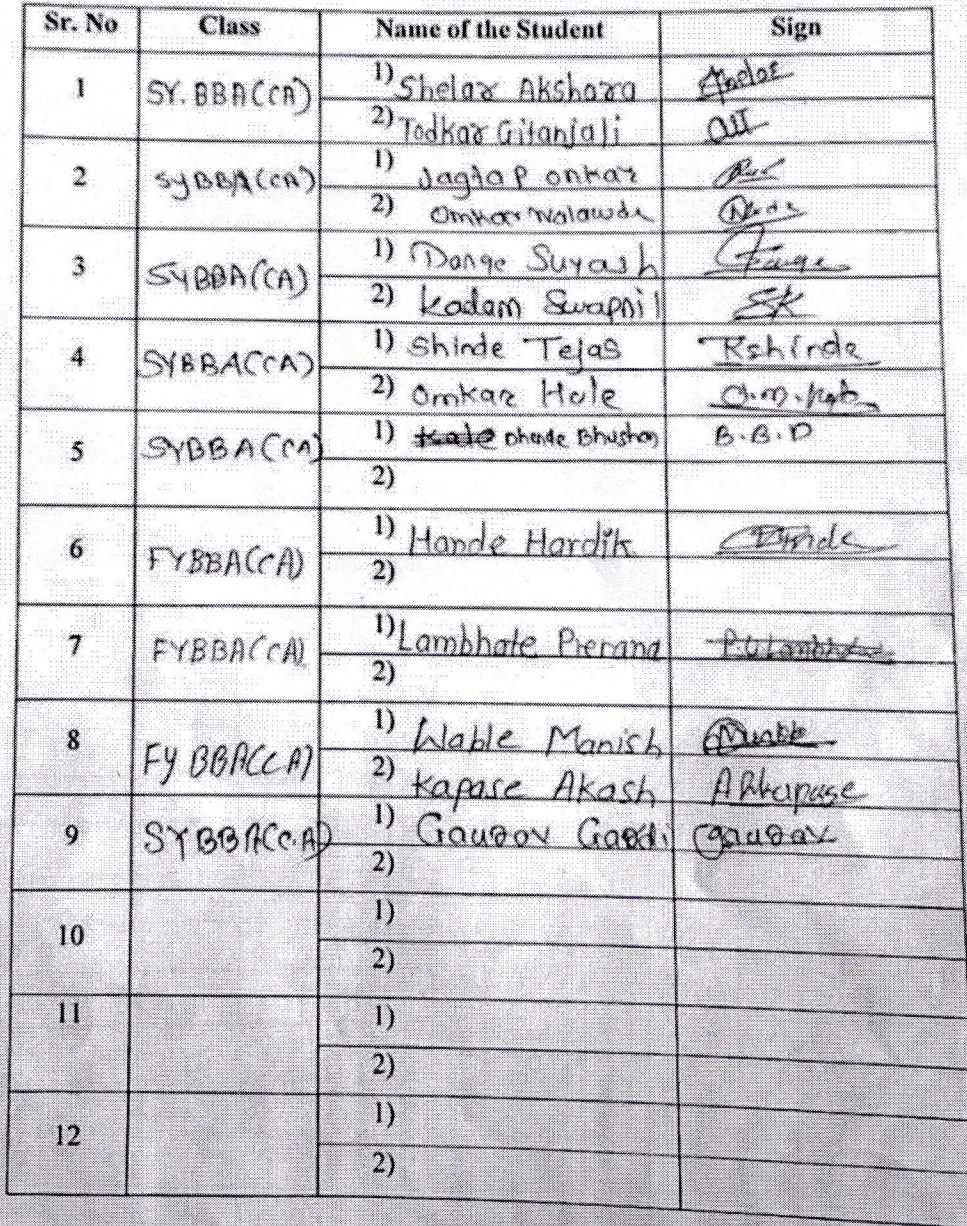 Sr. No Class Name of the Student Sign
1 SY.BBA(CA) 1) Shelar Akshara Shelar
2) Todkar Gitanjali
2 SYBBA(CA) 1) Jagtap Onkar
2) Omkar Walawde
3 SYBBA(CA) 1) Dange Suyash Dange
2) Kadam Swapnil SK
4 SYBBA(CA) 1) Shinde Tejas Rshinde
2) Omkar Hole
5 SYBBA(CA) 1) Dhende Bhushan B.B.D
2)
6 FYBBA(CA) 1) Hande Hardik
2)
7 FYBBA(CA) 1) Lambhate Prerana P.U.Lambhate
2)
8 FY BBA(CA) 1) Wable Manish
2) Kapase Akash AKkapase
9 SYBBA(C.A) 1) Gaurav Gavdi gaurav
2)
10 1)
2)
11 1)
2)
12 1)
2)